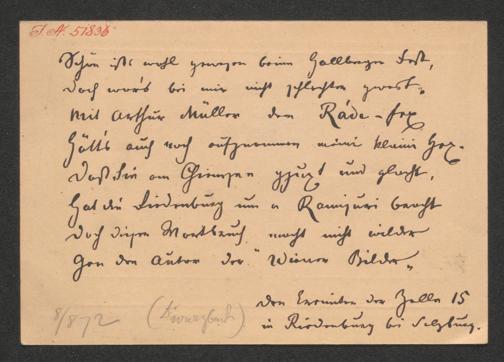 I. N. 51836
Schön ist's wohl gewesen beim Hallberger Fest,
Doch war's bei mir nicht schlechter gwest.
Mit Arthur Müller dem Råde-fex
Hött's auch noch aufgnommen meine kleine Hex.
Daß Sie am Chiemsee gjuxt und glacht,
Hat die Riedenburg um a Ramisuri bracht
Doch dieser Wortbruch macht nicht wilder
Gen den Autor der "Wiener Bilder"
Den Eremiten der Zelle 15
in Riedenburg bei Salzburg.
8/8 72